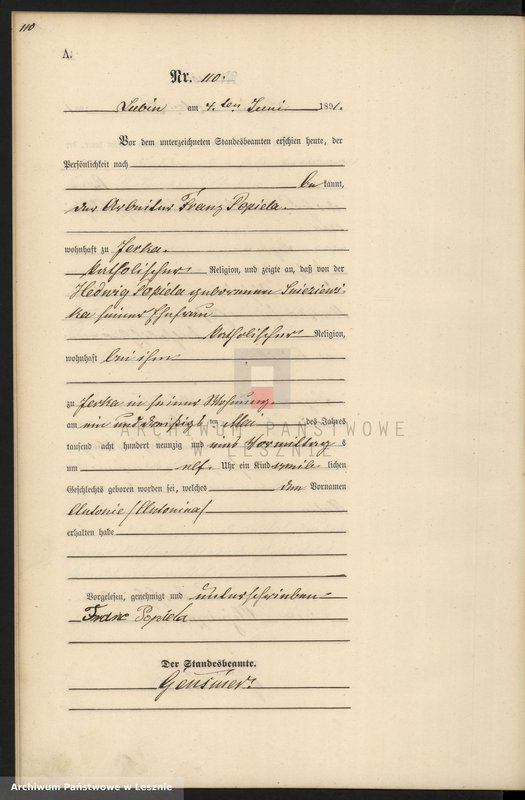 110
A.
Nr. 110.
Lubin am 4. ten Juni 1891.
Vor dem unterzeichneten Standesbeamten erschien heute, der
Persönlichkeit nach
be kannt,
der Arbeiter Franz Popiela.
wohnhaft zu Jerka.
katholischer Religion, und zeigte an, daß von der
Hedwig Popiela geborenen
ka seiner Ehefrau
katholischer Religion,
wohnhaft bei ihm
zu Jerka in seiner Wohnung
am ein und dreißigs ten Mai des Jahres
tausend acht hundert neunzig und eins Vormittag s
um elf Uhr ein Kind weib lichen
Geschlechts geboren worden sei, welches den Vornamen
Antonie /Antonina/
erhalten habe
Vorgelesen, genehmigt und unterschrieben
Franc Popiela
Der Standesbeamte.
ARCHIWUM PAŃSTWOWE
W LESZNIE
Archiwum Państwowe w Lesznie